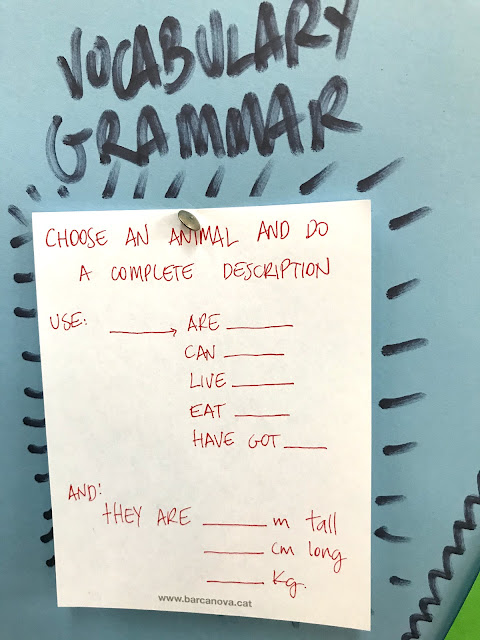 VOCABULARY
GRAMMAR
CHOOSE AN ANIMAL AND DO
A COMPLETE DESCRIPTION
USE: ______→ ARE ______
CAN ______
LIVE ______
EAT ______
HAVE GOT ______
AND:
THEY ARE ______ m tall
______ cm long
______ Kg.
www.barcanova.cat